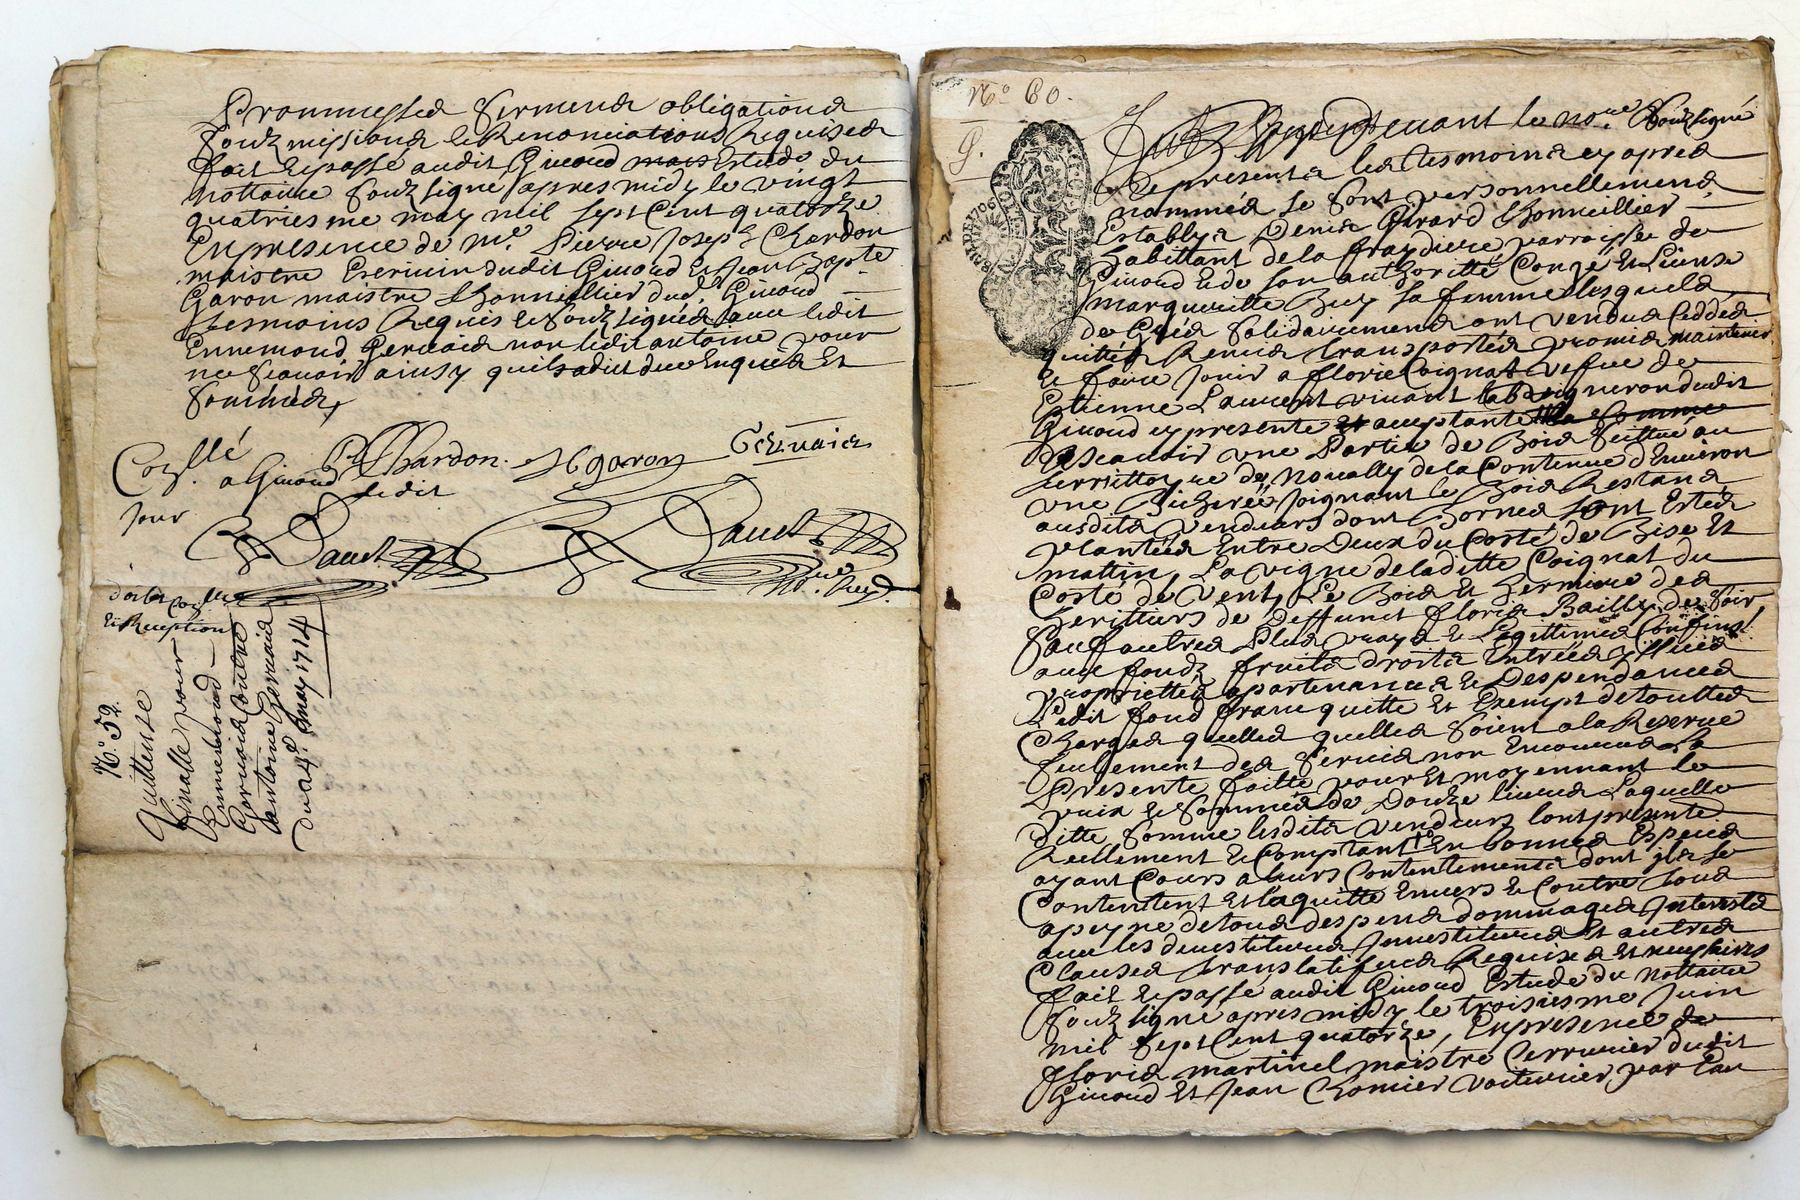 Prommesses sermens obligations
soubzmissions & Renonciations Requises
fait & passé audit Givord Estude du
nottaire soubzsigné apres midy le vingt
quatriesme may mil sept Cent quatorze
En presence de me. Pierre Joseph Chardon
maistre Escrivain dudit Givord Et Jean Bapte
Garon maistre Chonnellier dud. Givord
tesmoins Requis & soubzsignés avec ledit
Ennemond Gervais non ledit antoine pour
ne sçavoir ainsy quil a dit deue Enquis Et
sommés
Coz.llé a Givord ledit
jour
P Chardon
J B garon
Gervais
Dauet
Dauet
no.re Roy.
doibt Coz.lle
& Reception
N.o 59.
Quittense
finalle pour
Ennemond
Gervais Contre
antoine Gervais
du 24.e may 1714
N.o 60.
9.
pardevant le no.re soubzsigné
& presents les tesmoins cy apres
nommés se sont personnellement
Establys Denis Girard Thonnellier
habittant de la fraydiere parroisse de
Givord & de son authoritté Congé & License
marguerite Buy sa femme lesquels
de Gred solidairement ont vendus Ceddés
quittés Remis transportés promis maintenir
& faire jouir a florie Coignat vefve de
Estienne Laurent vivant vigneron dudit
Givord cy presente & acceptante
a Sçavoir une Partie de Bois scittué au
territtoyre de noually de la Contenue d'Environ
une Bicherée, joignant le Bois Restant
ausdits vendeurs dont Bornes sont Estés
plantées Entre Deux du Costé de Bise Et
mattin, La vigne de laditte Coignat du
Costé de vent, Le Bois & hermiere des
heritiers de Deffunt floris Bailly de soir
sauf autres plus vrays & Legittimes Confins,
avec fonds fruits droits Entrées yssues
propriettés apartenances & Despendances
Ledit fond franc quitte Et Exempt de touttes
Charges quelles quelles soient a la Reserve
seulement des servis non Encourus La
Presente faitte pour Et moyennant le
prix & somme de Douze livres Laquelle
ditte somme lesdits vendeurs lont presente
Reellement & Comptant En bonnes Especes
ayant Cours a leurs Contentements dont ils se
Contentent Et laquitte Envers & Contre tous
a peyne de tous despens dommages Interests
avec les devestitures Investitures Et autres
Clauses translatifves Requises Et necessaires
fait & passé audit Givord Estude du nottaire
soubzsigné apres midy le troisiesme Juin
mil sept Cent quatorze, En presence de
floris martinel maistre Serrurier dudit
Givord Et Jean Chomier voiturier par Eau